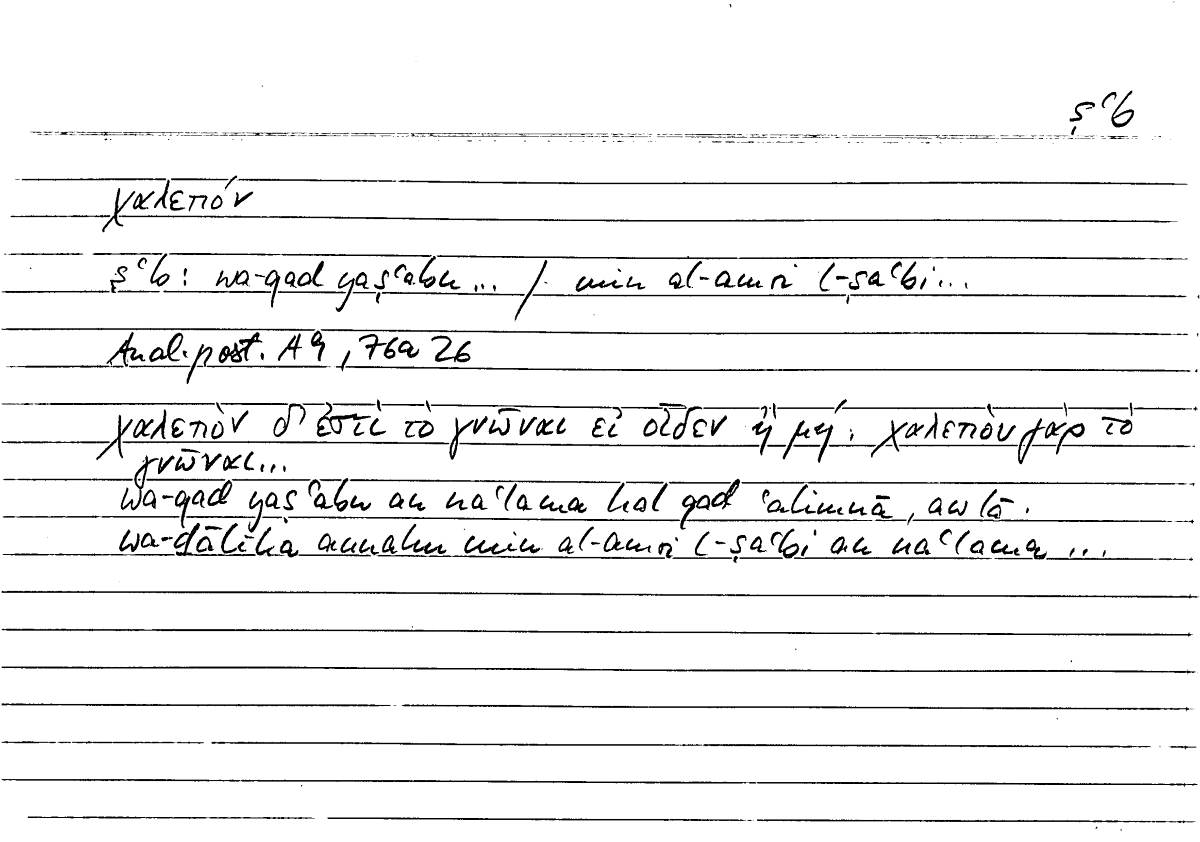 ṣʿb
χαλεπόν
ṣʿb: wa-qad yaṣʿabu... / min al-amri l-ṣaʿbi...
Anal. post. A 9, 76a 26
χαλεπὸν δ' ἐστὶ τὸ γνῶναι εἰ οἶδεν ἢ μή. χαλεπὸν γὰρ τὸ
γνῶναι...
wa-qad yaṣʿabu an naʿlama hal qad ʿalimnā, aw lā.
wa-ḏālika annahu min al-amri l-ṣaʿbi an naʿlama ...